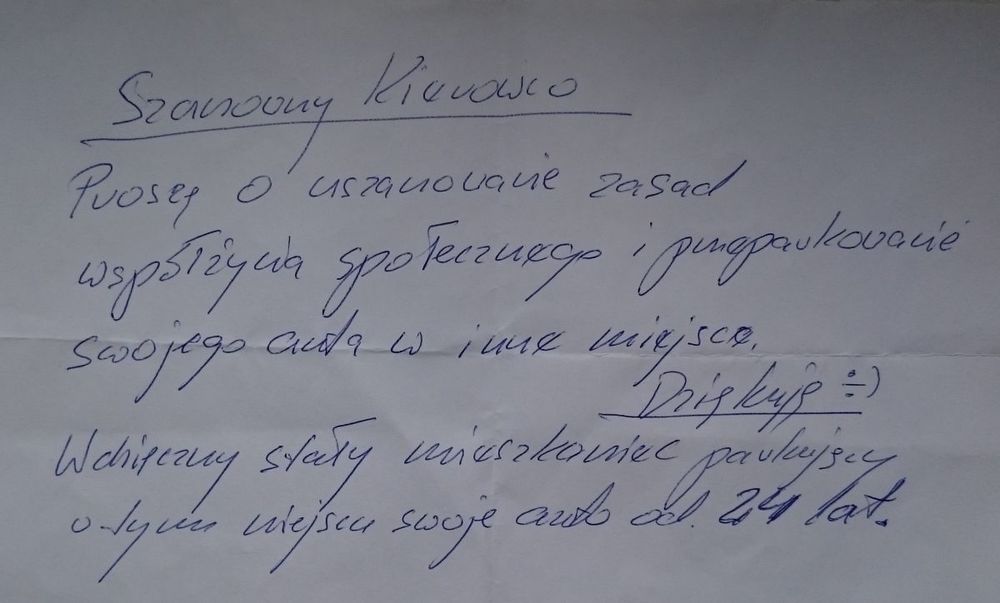 Szanowny Kierowco
Proszę o uszanowanie zasad
współżycia społecznego i przeparkowanie
swojego auta w inne miejsce.
Dziękuję :-)
Wdzięczny stały mieszkaniec parkujący
w tym miejscu swoje auto od 24 lat.